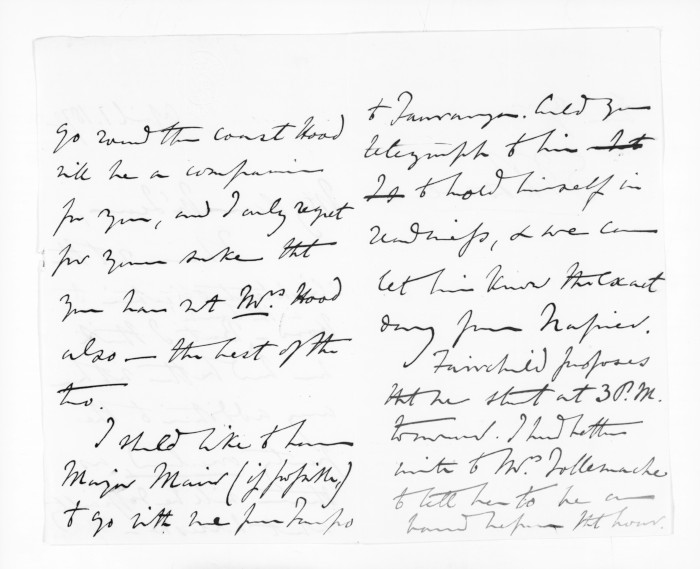 go round the coast Hood
will be a companion
for you, and I only regret
for your sake that
you have not Mrs Hood
also — the best of the
two.
I should like to have
Major Mair (if possible,)
to go with me from Taupo
to Tauranga. Could you
telegraph to him
to hold himself in
readiness, & we can
let him know the exact
day from Napier.
Fairchild proposes
that we start at 3 P.M.
tomorrow. I had better
write to Mrs Tollemache
to tell her to be on
board before that hour.